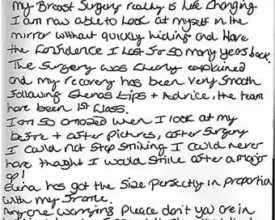 my Breast Surgery really is Life Changing.
I am now able to Look at myself in the
mirror without quickly hiding and Have
the Confidence I Lost for so many years back.
The Surgery was Clearly explained
and my recovery has been very Smooth
following Elenas tips + Advice, the team
have been 1st Class.
I am so amazed when I look at my
before + after pictures, after Surgery
I could not stop smiling I could never
have thought I would smile after a major
op!
Elena has got the size perfectly in proportion
with my frame.
Anyone worrying Please don't you are in